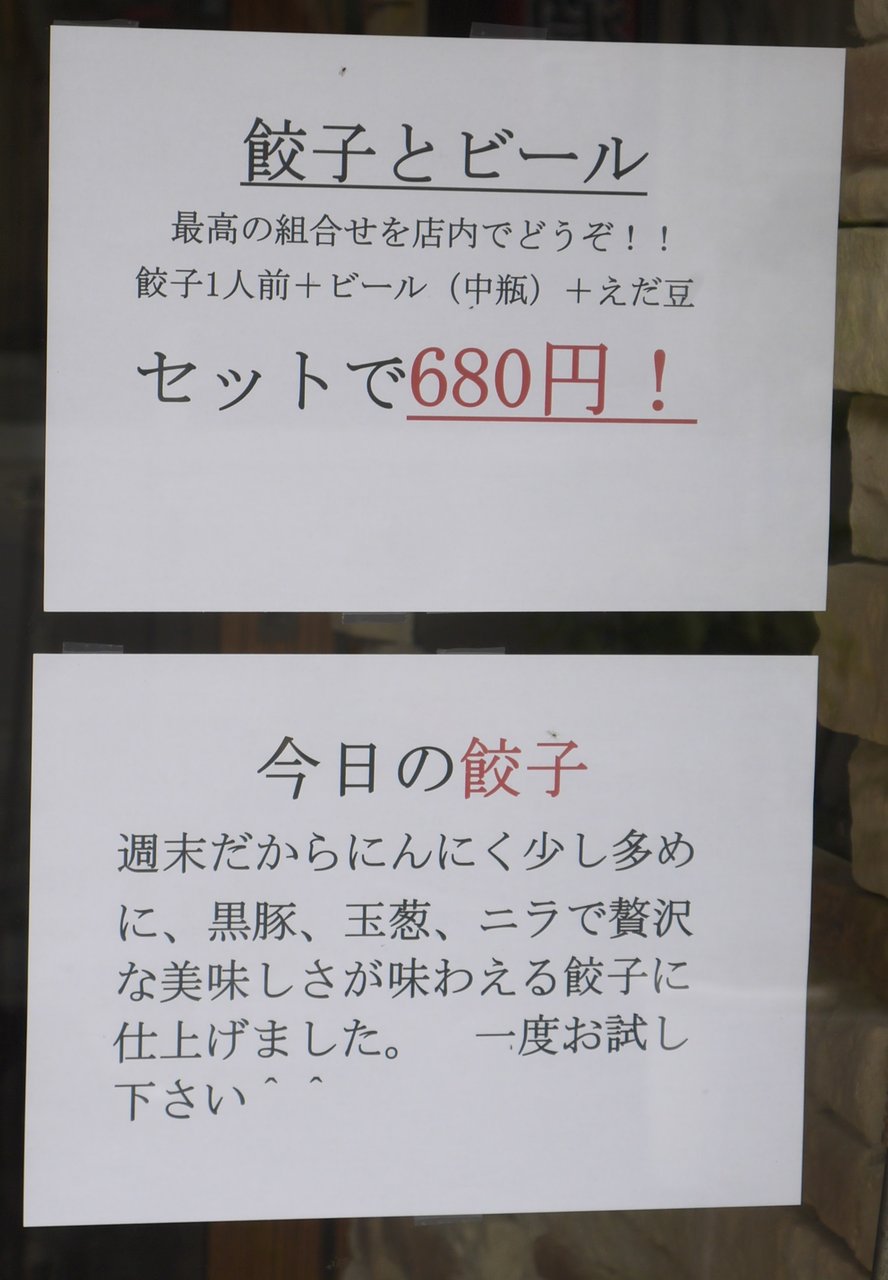 餃子とビール
最高の組合せを店内でどうぞ！！
餃子1人前＋ビール（中瓶）＋えだ豆
セットで680円！
今日の餃子
週末だからにんにく少し多め
に、黒豚、玉葱、ニラで贅沢
な美味しさが味わえる餃子に
仕上げました。　一度お試し
下さい＾＾